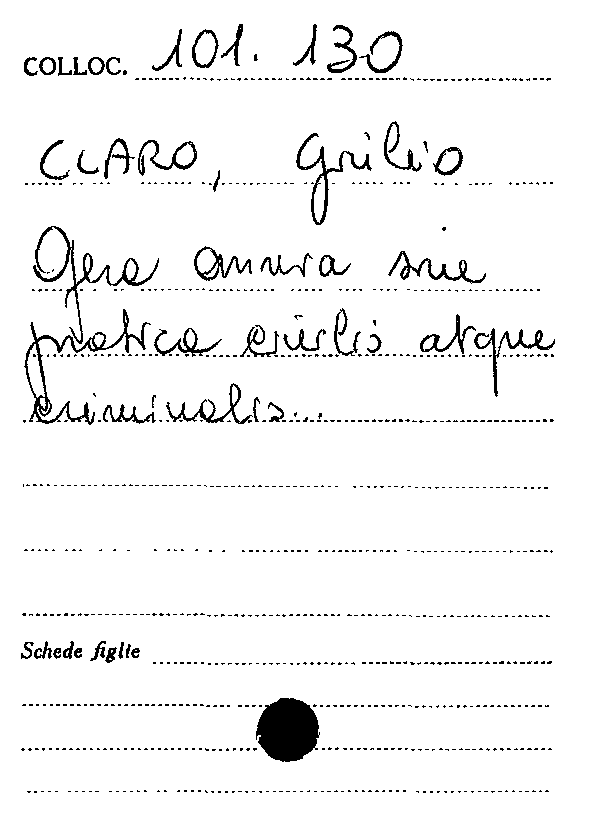 COLLOC. 101. 130
CLARO, Giulio
Opera omnia sive
pratica civilis atque
criminalis...
Schede figlie